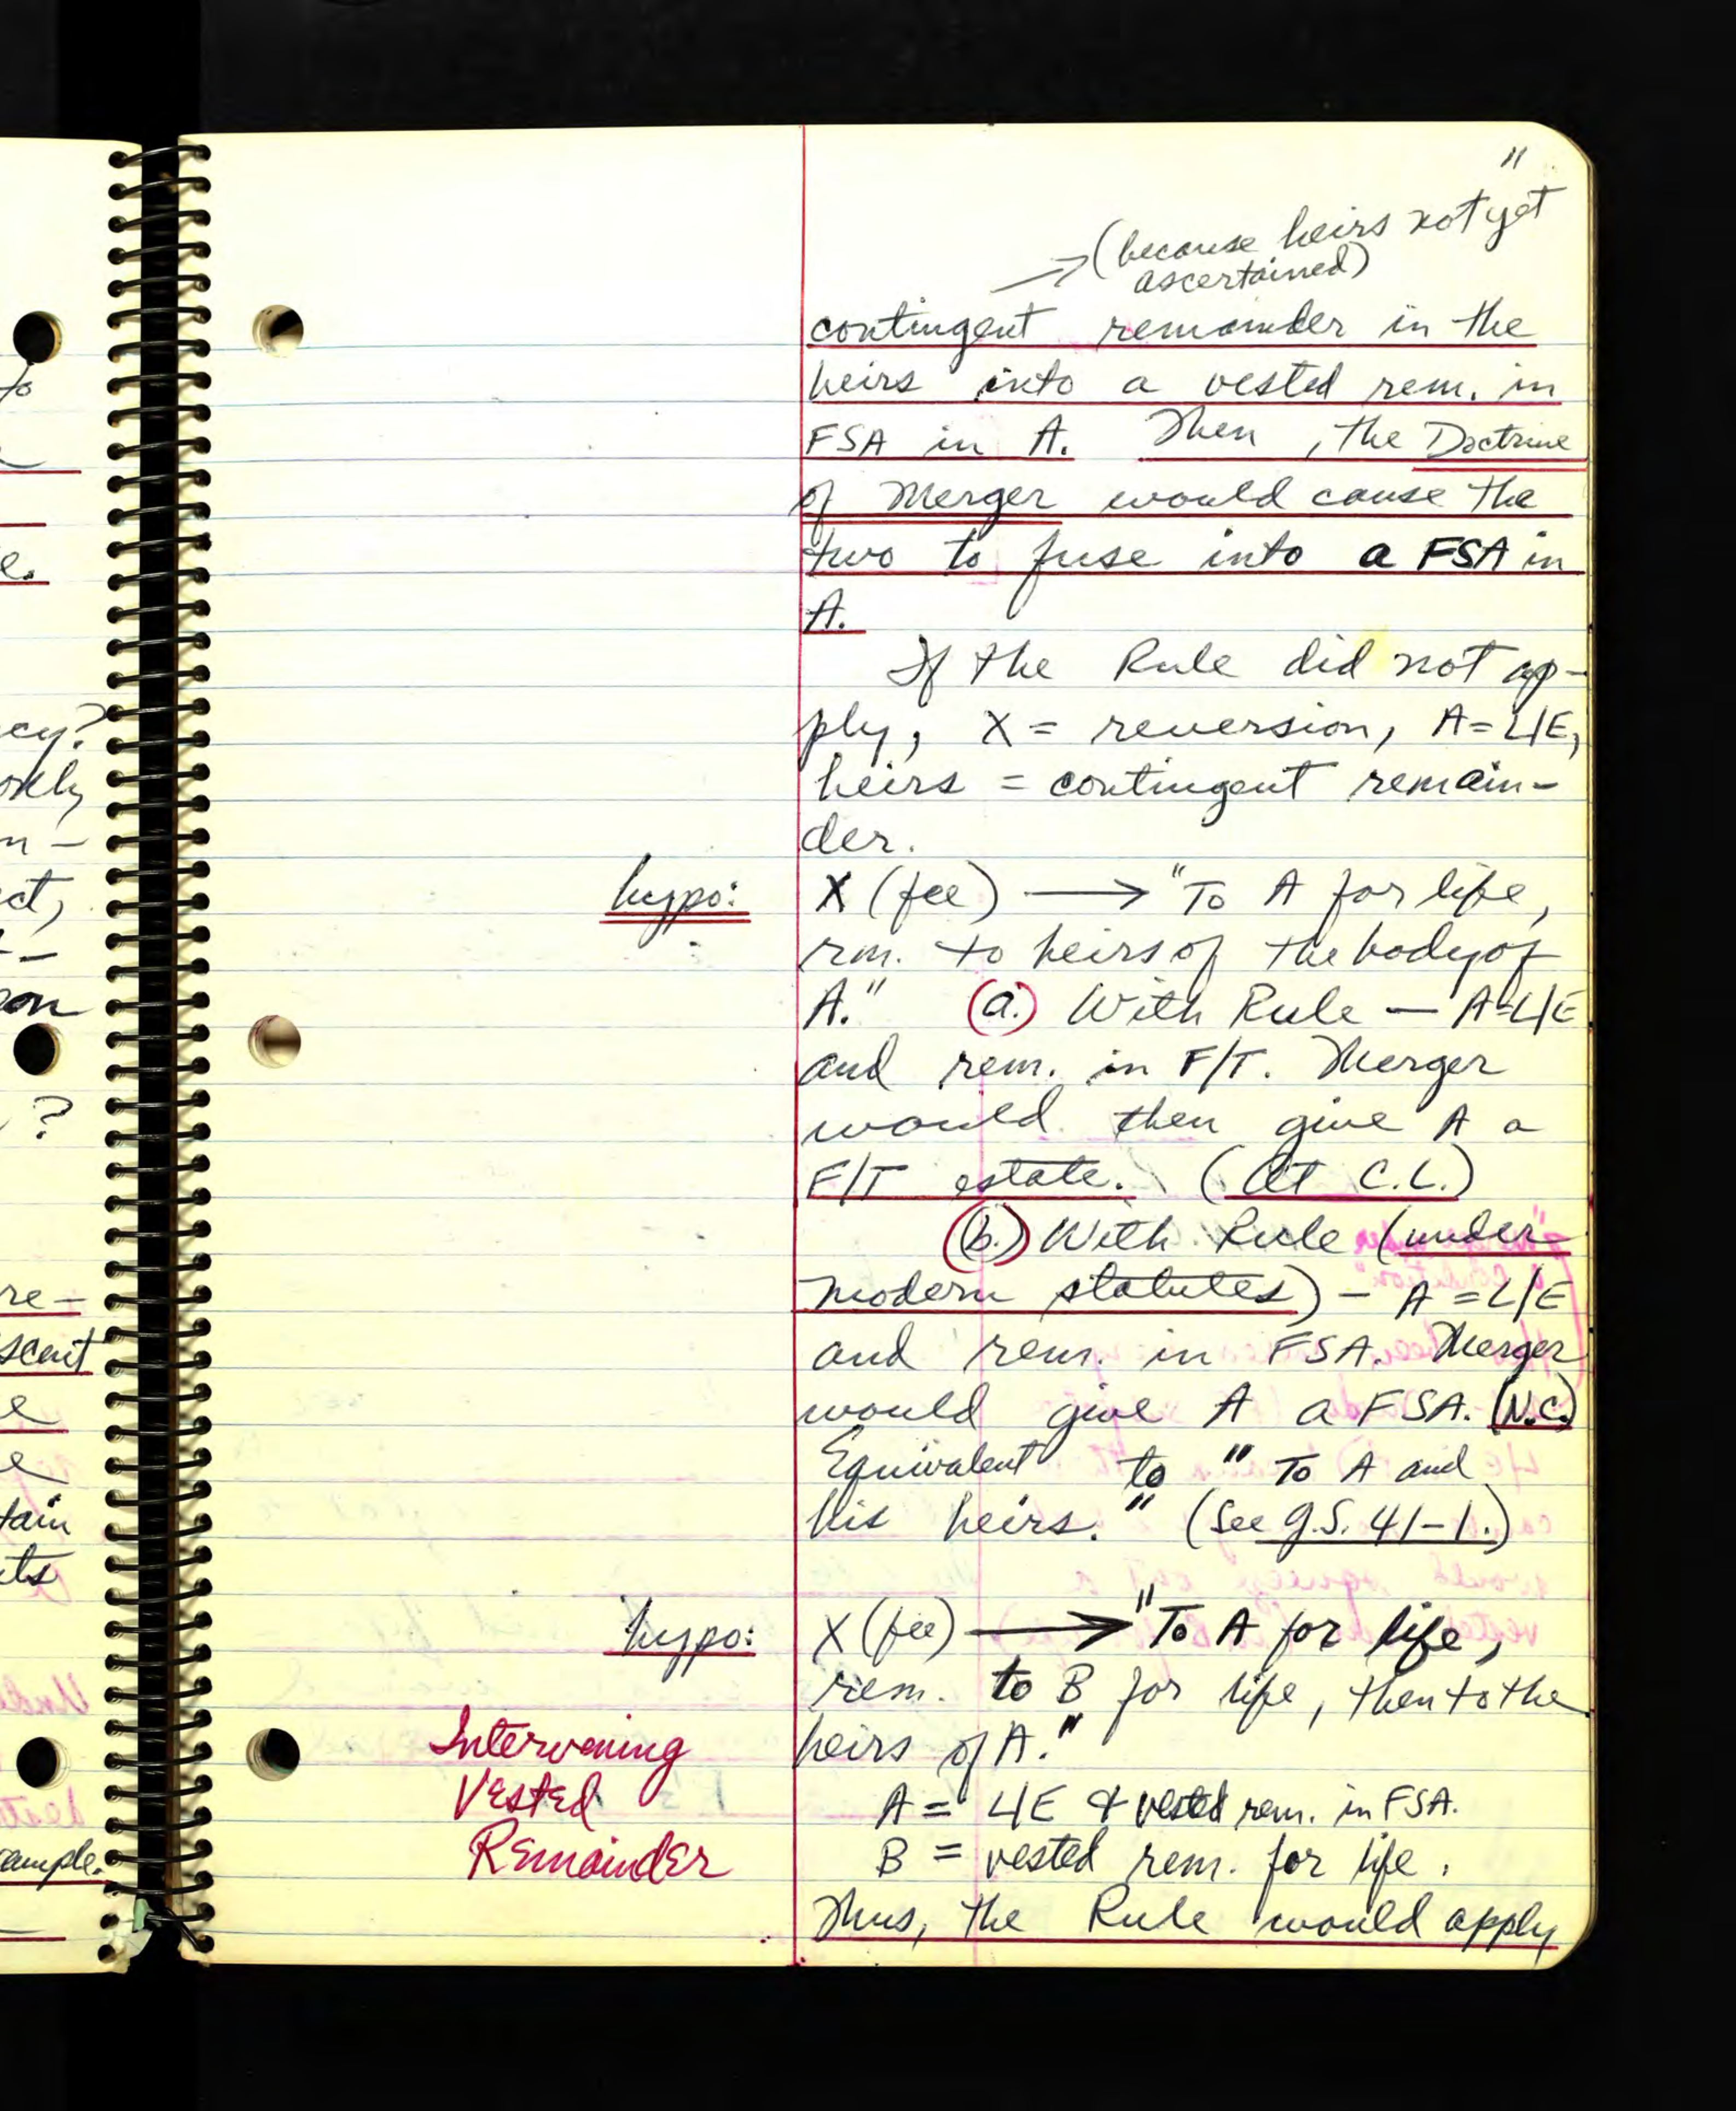 11
(because heirs not yet
ascertained)
contingent remainder in the
heirs into a vested rem. in
FSA in A. Then, the Doctrine
of Merger would cause the
two to fuse into a FSA in
A.
If the Rule did not ap-
ply, X = reversion, A = L/E,
heirs = contingent remain-
der.
hypo: X (fee) → "To A for life,
rm. to heirs of the body of
A." (a.) With Rule — A=L/E
and rem. in F/T. Merger
would then give A a
F/T estate. (At C.L.)
(b.) With Rule (under
modern statutes) - A = L/E
and rem. in FSA. Merger
would give A a FSA. (N.C.)
Equivalent to "To A and
his heirs." (See G.S. 41-1.)
hypo: X (fee) → "To A for life,
rem. to B for life, then to the
heirs of A."
Intervening
Vested
Remainder
A = L/E & vested rem. in FSA.
B = vested rem. for life.
Thus, the Rule would apply
to
e.
ecy?
okly
n-
ct,
?
re-
scent
e
e
tain
ts
ample.